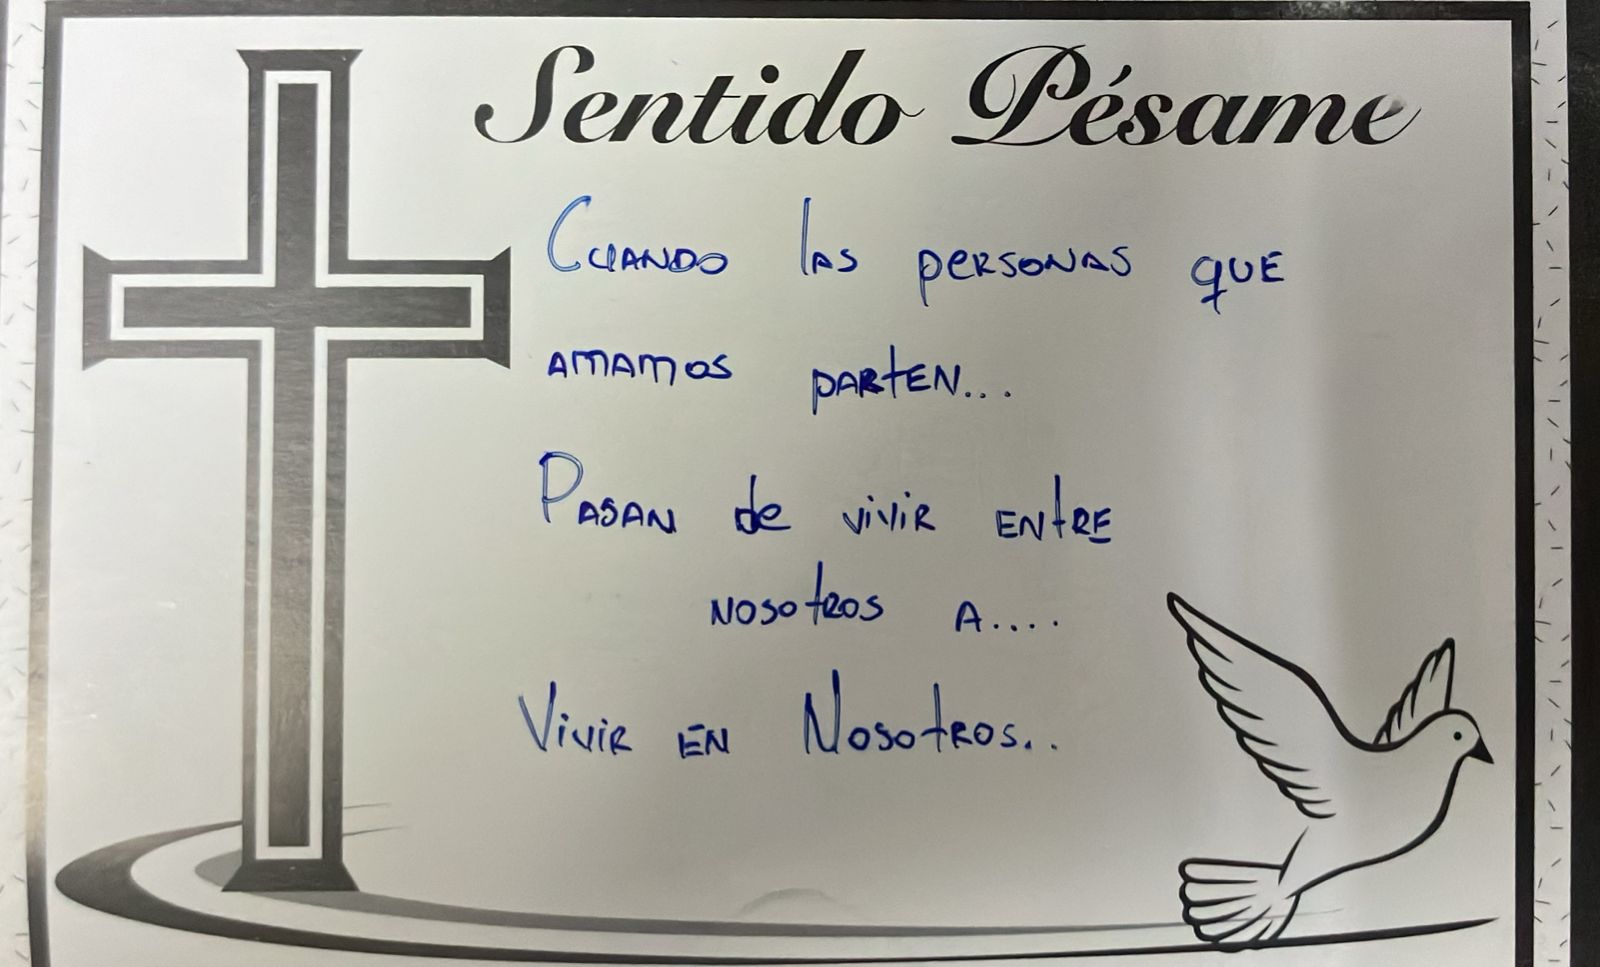 Sentido Pésame
Cuando las personas que
amamos parten...
Pasan de vivir entre
nosotros a....
Vivir en Nosotros...